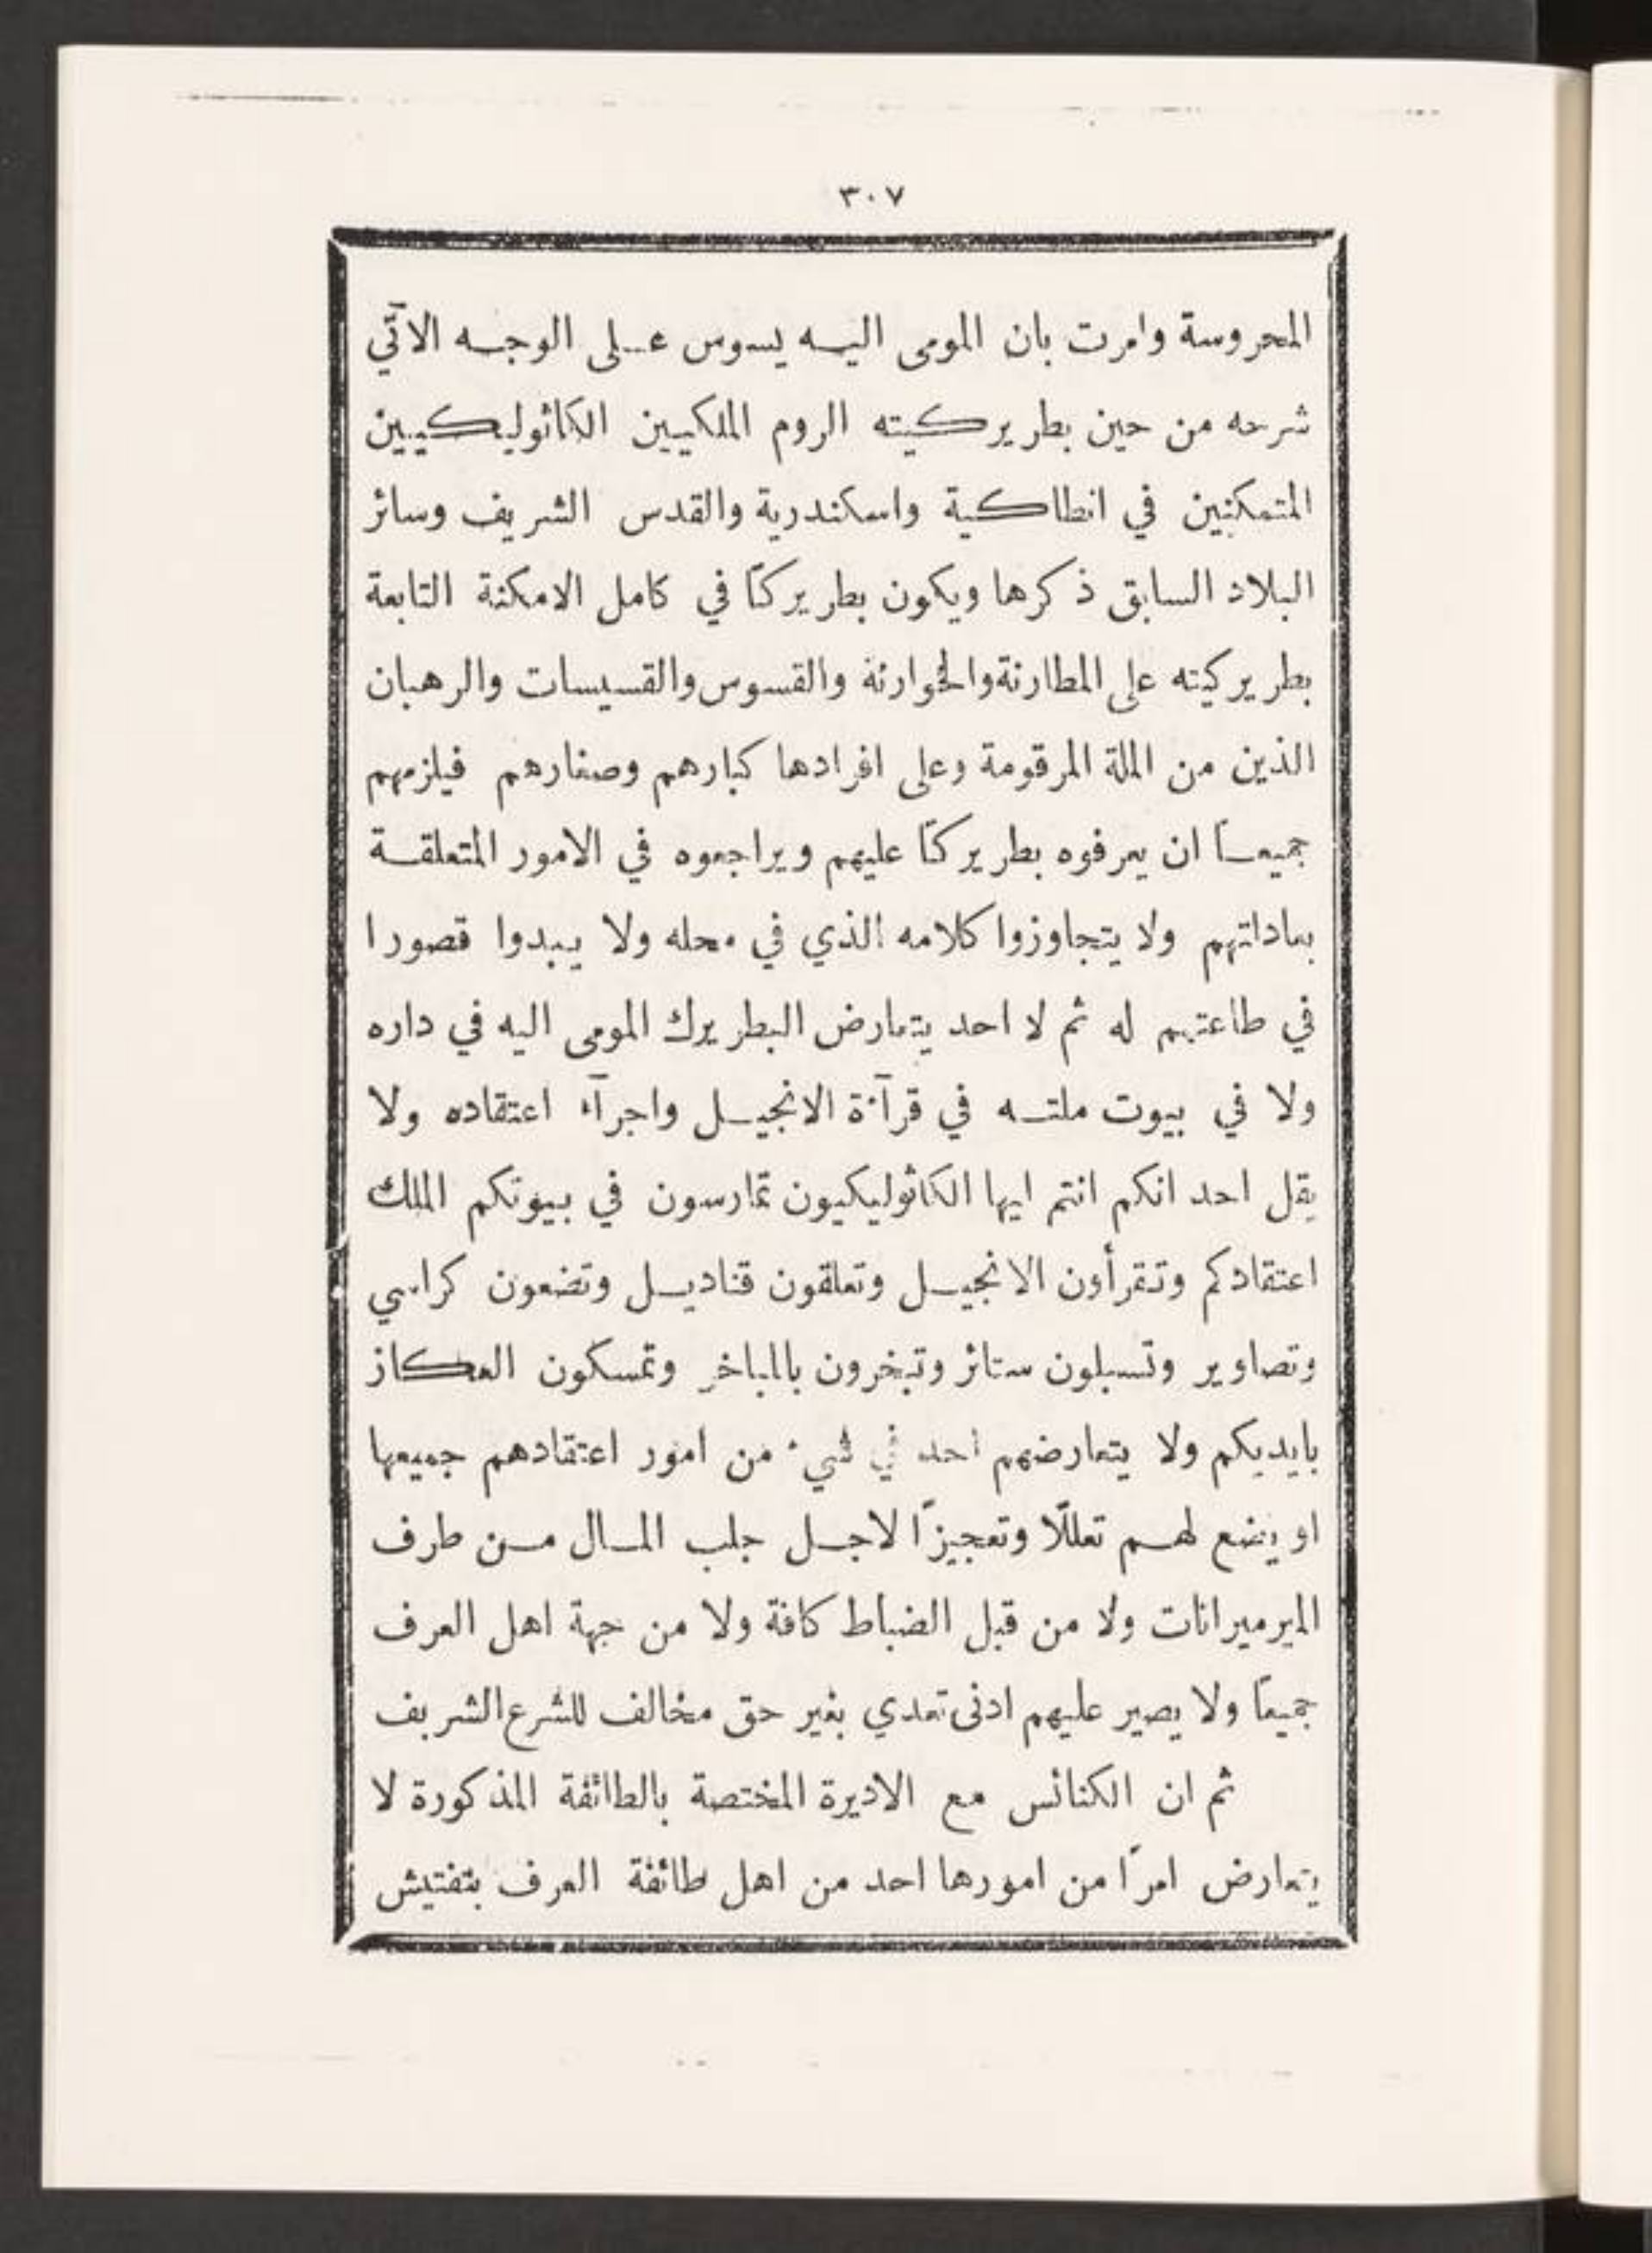 ٣٠٧
المحروسة وامرت بان المومى اليه يسوس على الوجه الآتي
شرحه من حين بطريركيته الروم الملكيين الكاثوليكيين
المتمكنين في انطاكية واسكندرية والقدس الشريف وسائر
البلاد السابق ذكرها ويكون بطريركًا في كامل الامكنة التابعة
بطريركيته على المطارنة والخوارنة والقسوس والقسيسات والرهبان
الذين من الملة المرقومة وعلى افرادها كبارهم وصغارهم فيلزمهم
جميعًا ان يعرفوه بطريركًا عليهم ويراجعوه في الامور المتعلقة
بعاداتهم ولا يتجاوزوا كلامه الذي في محله ولا يبدوا قصورا
في طاعتهم له ثم لا احد يتعارض البطريرك المومى اليه في داره
ولا في بيوت ملته في قرآءة الانجيل واجرآء اعتقاده ولا
يقل احد انكم انتم ايها الكاثوليكيون تمارسون في بيوتكم الملك
اعتقادكم وتقرأون الانجيل وتعلقون قناديل وتضعون كراسي
وتصاوير وتسبلون ستائر وتبخرون بالمباخر وتمسكون العكاز
بايديكم ولا يتعارضهم احد في شيء من امور اعتقادهم جميعها
او يضع لهم تعللًا وتعجيزًا لاجل جلب المال من طرف
الميرميرانات ولا من قبل الضباط كافة ولا من جهة اهل العرف
جميعًا ولا يصير عليهم ادنى تعدي بغير حق مخالف للشرع الشريف
ثم ان الكنائس مع الاديرة المختصة بالطائفة المذكورة لا
يتعارض امرًا من امورها احد من اهل طائفة العرف بتفتيش